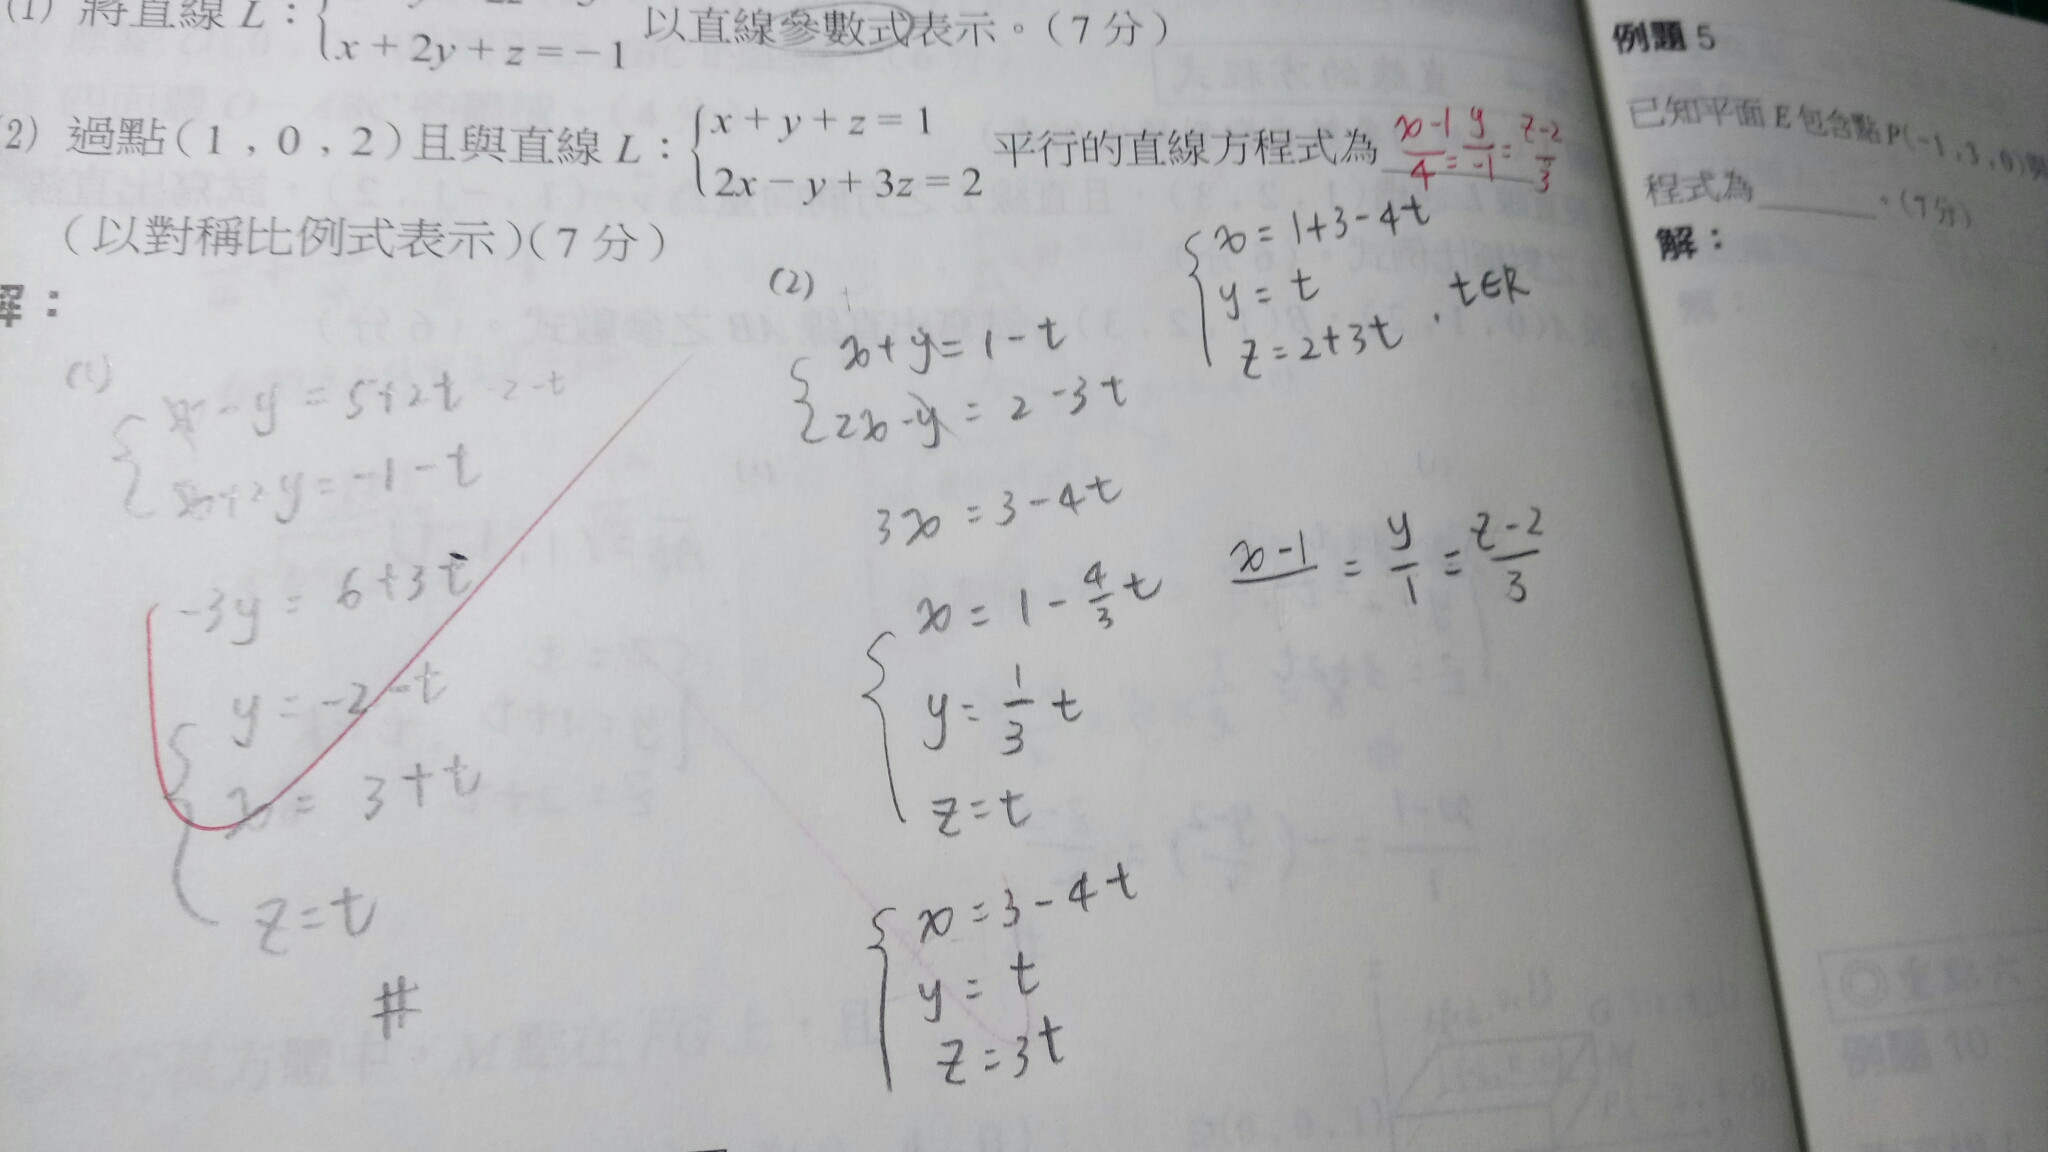 (1) 將直線 L：
x + 2y + z = -1 以直線參數式表示。(7 分)
(2) 過點 (1 , 0 , 2) 且與直線 L： x + y + z = 1
2x - y + 3z = 2 平行的直線方程式為 x-1/4 = y/-1 = z-2/3
(以對稱比例式表示)(7 分)
解：
(1)
x - y = 5+2t -2-t
x+2y = -1-t
-3y = 6+3t
y = -2-t
x = 3+t
z=t
#
(2)
x+y = 1-t
2x-y = 2-3t
3x = 3-4t
x = 1 - 4/3 t
y = 1/3 t
z=t
x = 3-4t
y = t
z=3t
x = 1+3-4t
y = t , t∈R
z=2+3t
x-1 = y/1 = z-2/3
例題 5
已知平面 E 包含點 P(-1 , 3 , 0) 與
程式為 。(7分)
解：